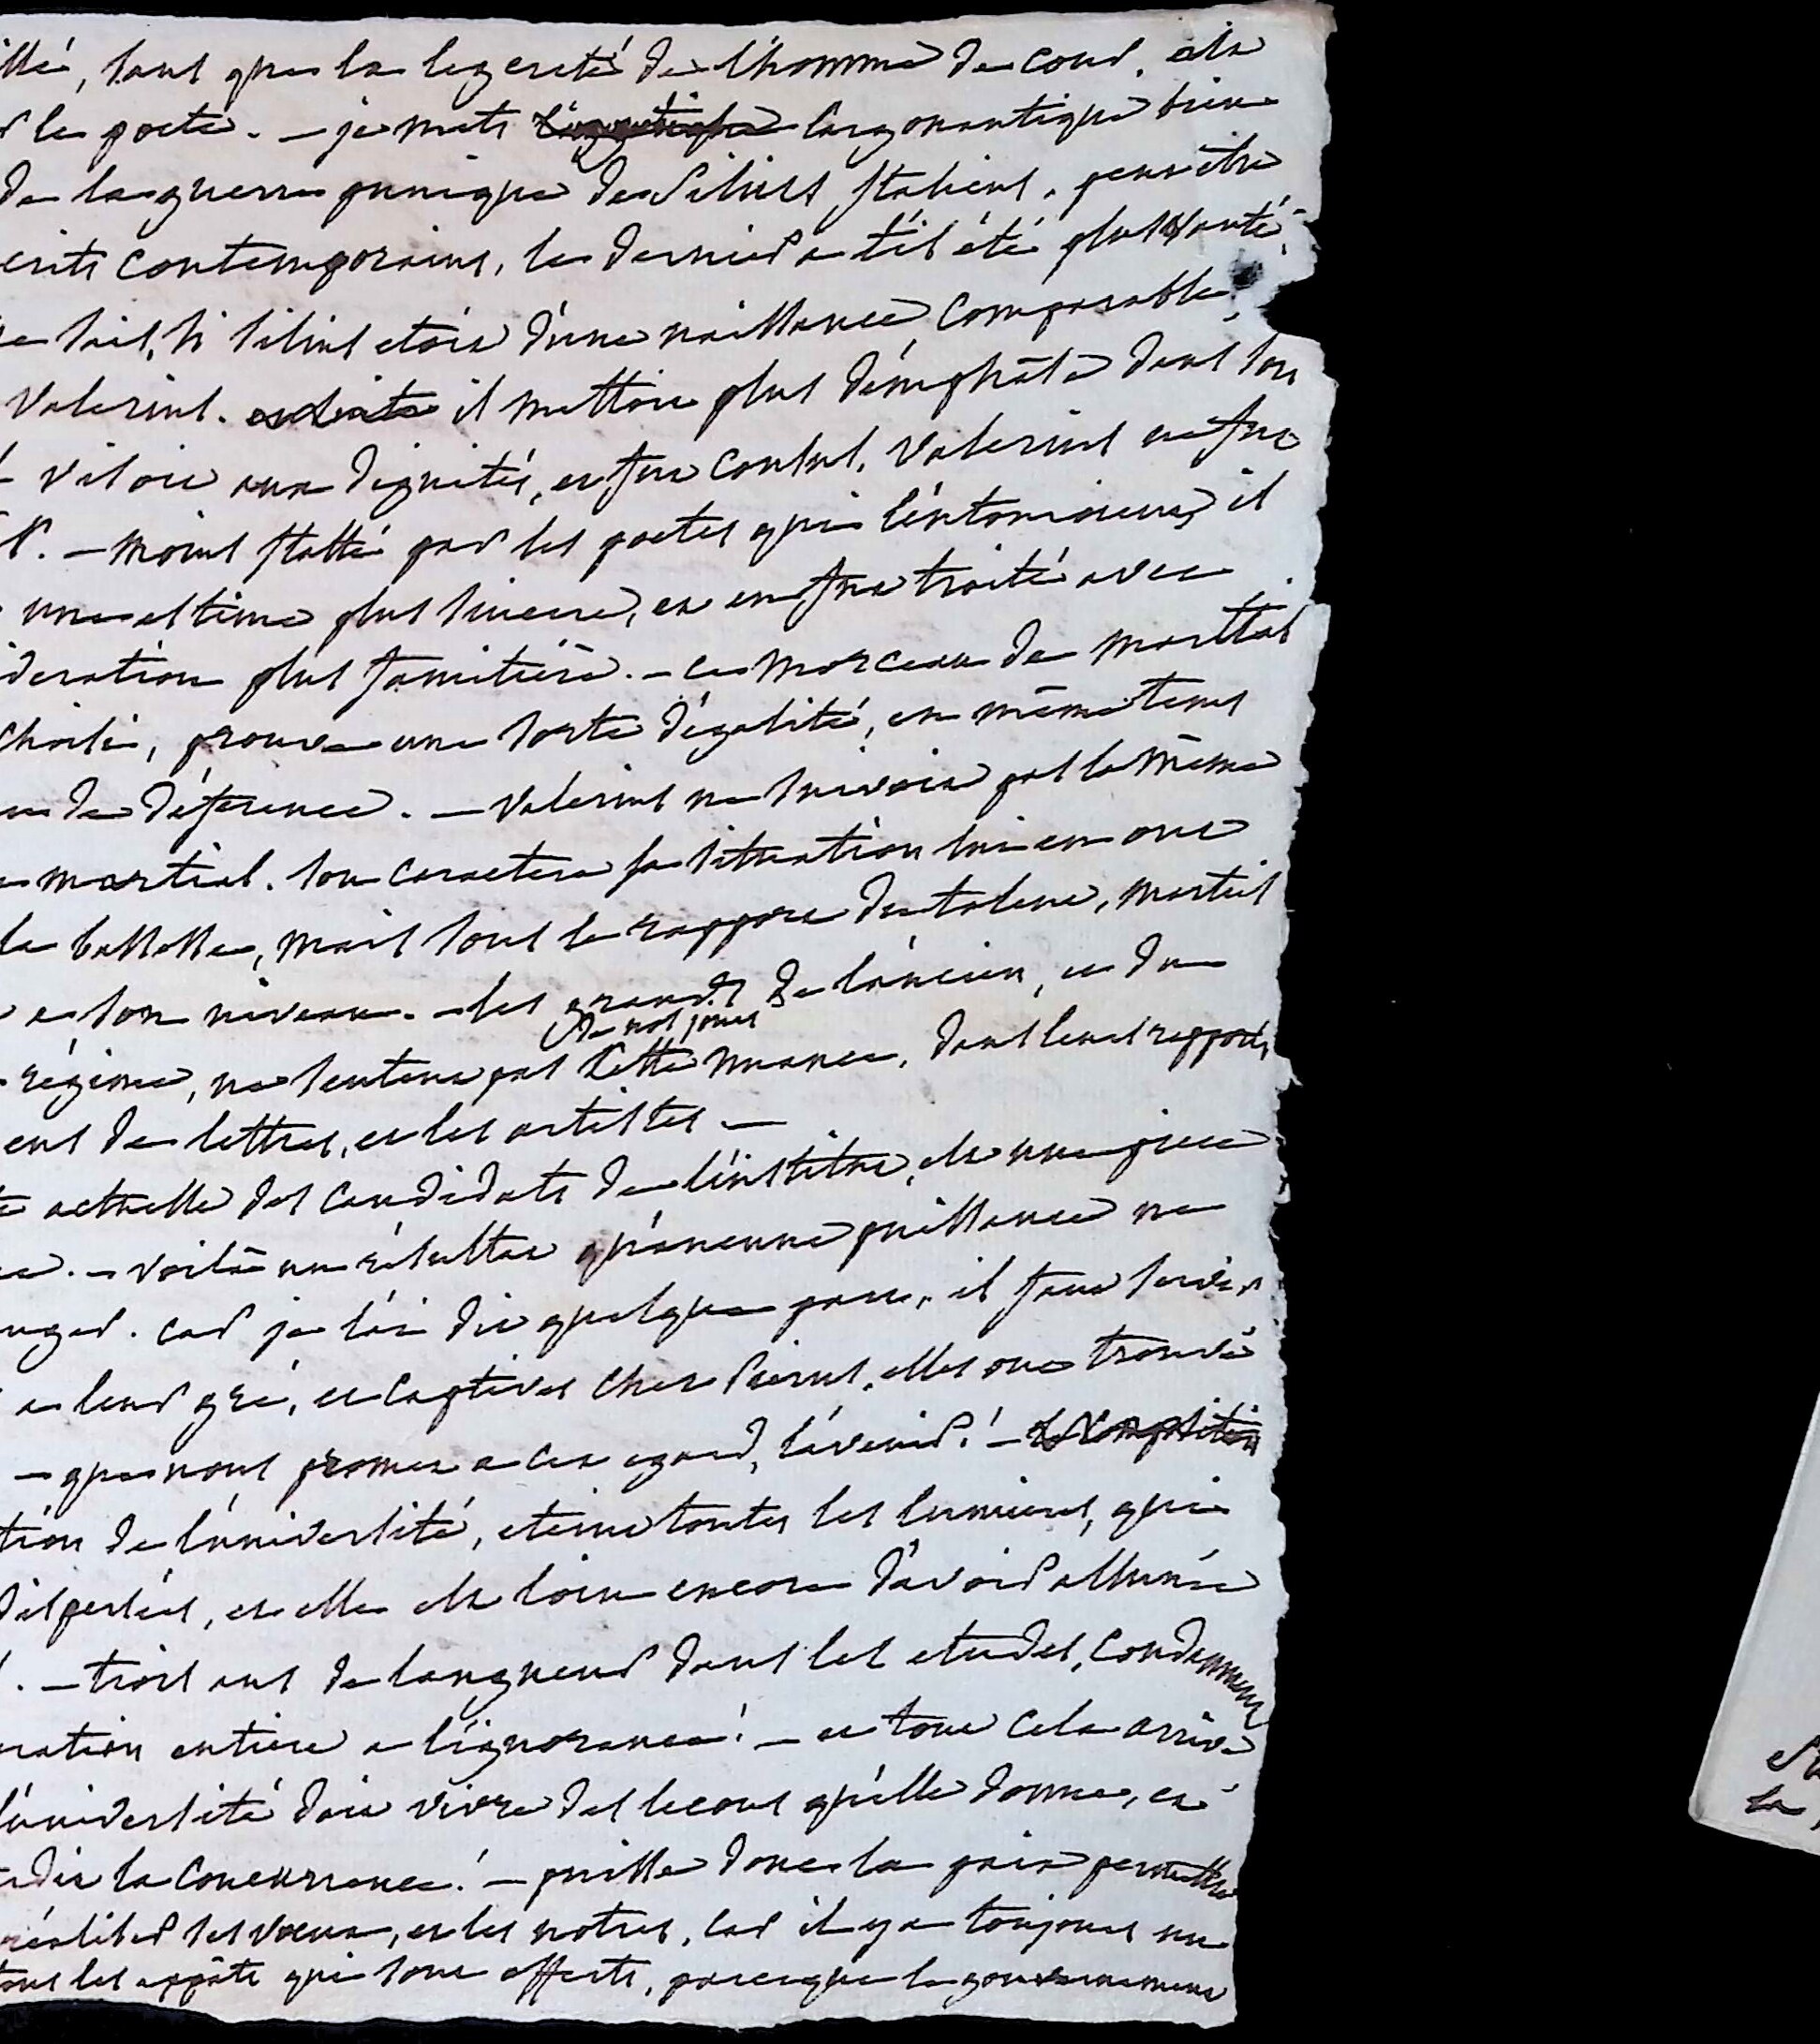 illé, tous que la legereté de l'homme de cour. et a
r le poete. — je mets l'argonautique bien
de la guerre punique de Silius Italicus. peut être
erits contemporains, le dernier a til été plus vanté.
e sais, si silius etois d'une naissance comparable,
Valerius. il mettoit plus d'emphâse dans son
visoit aux dignités, et fut consul. Valerius ne fut
r. — moins flatté par les poetes qui l'entouroient, il
une estime plus sincere, et en fut traité avec
ideration plus familière. — ce morceau de marttial
choisi, prouve une sorte d'égalité, en même tems
de déference. — Valerius ne suivoit pas la même
martial. son caractere sa situation lui en ont
la bassesse, mais sous le rapport du talent, martial
a son niveau. — les grands de l'ancien, et du
de nos jours
régime, ne sentent pas cette nuance, dans leurs rapports
ens de lettres, et les artistes —
actuelle des candidats de l'institut, est une piece
— voilà un résultat qu'aucune puissance ne
nger. car je l'ai dit quelque part, il faut servir
a leur gré, et captives chez Pierus, elles ont trouvé
— que nous promet a cet egard, l'avenir! —
tion de l'université, eteint toutes les lumieres, qui
dispersées, et elle est loin encore d'avoir allumée
. — trois ans de langueur dans les etudes, condamnent
ration entiere a l'ignorance! — et tout cela arrive
l'université doit vivre des lecons qu'elle donne, et
dit la concurrence! — puisse donc la paix permettre
réaliser ses vœux, et les notres, car il y a toujours un
ous les appâts qui sont offerts, parceque le gouvernement
St
la